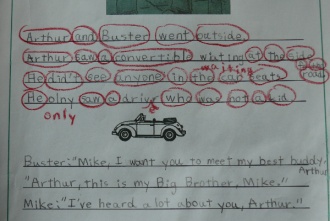 Arthur and Buster went outside.
Arthur saw a convertible wiating at the sid
He did't see anyone in the car seats. road
waiting
He olny saw a drive who was not a kid.
only
Buster: "Mike, I want you to meet my best buddy,
Arthur
"Arthur, this is my Big Brother, Mike."
Mike: "I've heard a lot about you, Arthur."